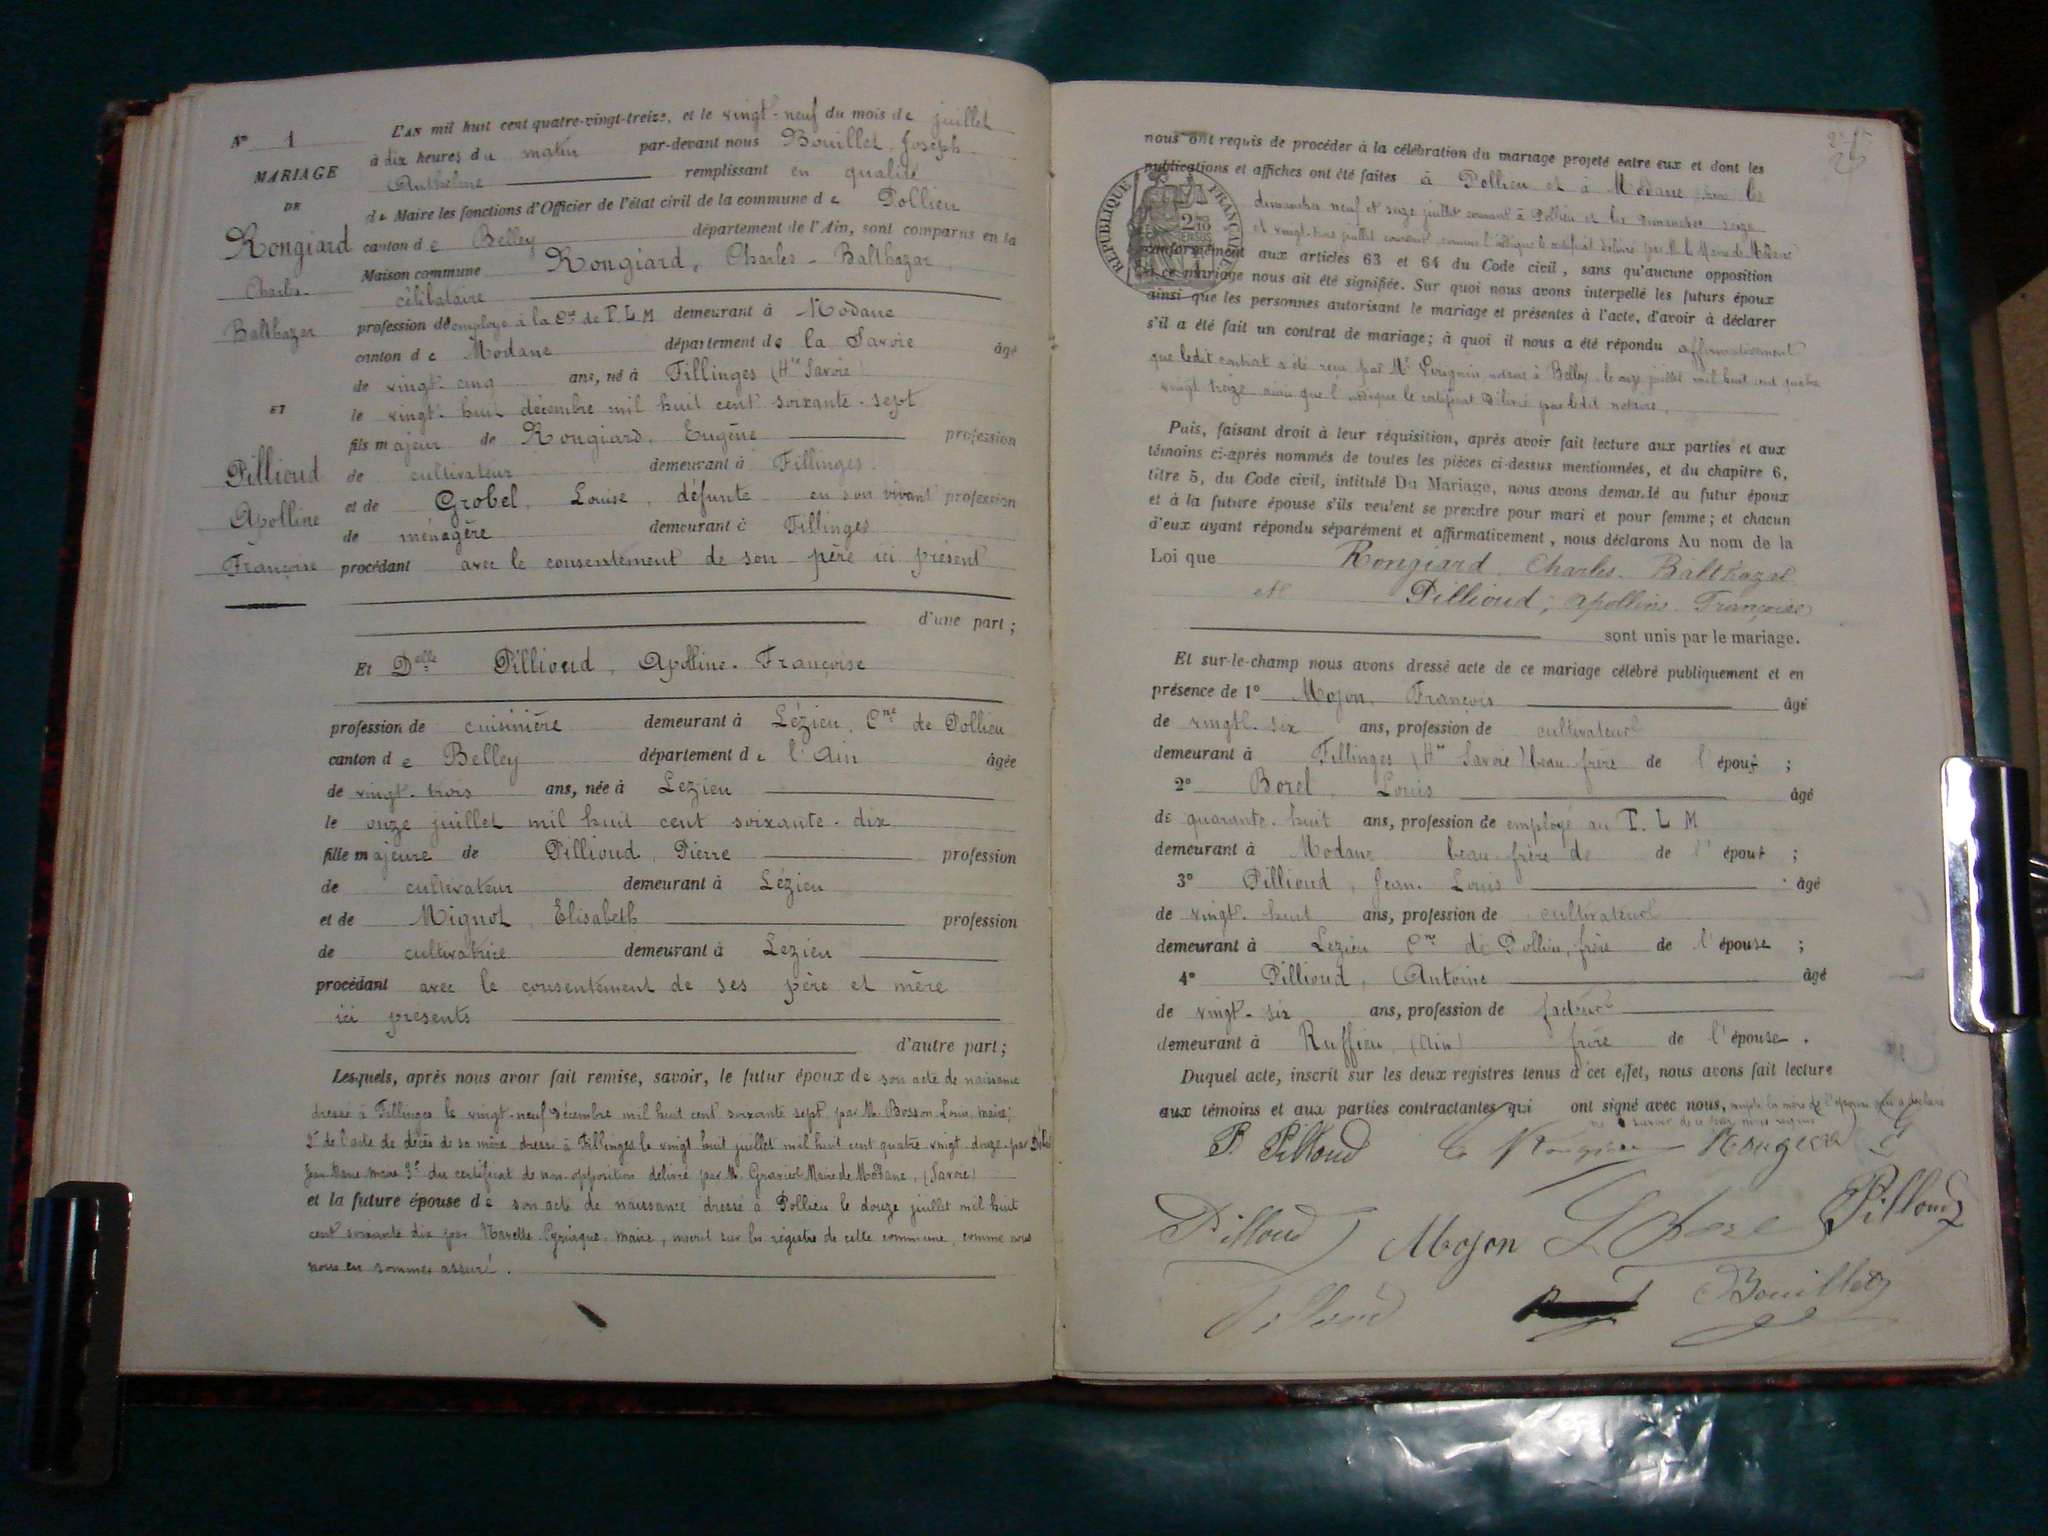 N° 1
MARIAGE
DE
Rongiard
Charles
Balthazar
ET
Pillioud
Apolline
Françoise
L'AN mil huit cent quatre-vingt-treize, et le vingt-neuf du mois de juillet
à dix heures du matin par-devant nous Bouillet Joseph
Anthelme remplissant en qualité
de Maire les fonctions d'Officier de l'état civil de la commune de Pollieu
canton de Belley département de l'Ain, sont comparus en la
Maison commune Rongiard, Charles-Balthazar
célibataire
profession de employé à la Cie de P.L.M demeurant à Modane
canton de Modane département de la Savoie âgé
de vingt-cinq ans, né à Fillinges (Hte Savoie)
le vingt-huit décembre mil huit cent soixante-sept
fils majeur de Rongiard, Eugène profession
de cultivateur demeurant à Fillinges
et de Grobel, Louise, défunte en son vivant profession
de ménagère demeurant à Fillinges
procédant avec le consentement de son père ici présent
d'une part ;
Et Delle Pillioud, Apolline-Françoise
profession de cuisinière demeurant à Lézieu, Cne de Pollieu
canton de Belley département de l'Ain âgée
de vingt-trois ans, née à Lezieu
le onze juillet mil huit cent soixante-dix
fille majeure de Pillioud, Pierre profession
de cultivateur demeurant à Lézieu
et de Mignot, Elisabeth profession
de cultivatrice demeurant à Lezieu
procédant avec le consentement de ses père et mère
ici présents
d'autre part ;
Lesquels, après nous avoir fait remise, savoir, le futur époux de son acte de naissance
dressé à Fillinges le vingt-neuf décembre mil huit cent soixante sept par M. Bosson Louis, maire;
2° de l'acte de décès de sa mère dressé à Fillinges le vingt huit juillet mil huit cent quatre vingt douze par
maire 3° du certificat de non-opposition délivré par M. Maire de Modane, (Savoie)
et la future épouse de son acte de naissance dressé à Pollieu le douze juillet mil huit
cent soixante dix par maire, inscrit sur les registres de cette commune, comme nous
nous en sommes assuré.
nous ont requis de procéder à la célébration du mariage projeté entre eux et dont les
publications et affiches ont été faites à Pollieu et à Modane les
dimanches neuf et seize juillet courant à Pollieu et les dimanches seize
et vingt-trois juillet courant comme l'indique le certificat délivré par M. le Maire de Modane
RÉPUBLIQUE FRANÇAISE
conformément aux articles 63 et 64 du Code civil, sans qu'aucune opposition
à ce mariage nous ait été signifiée. Sur quoi nous avons interpellé les futurs époux
ainsi que les personnes autorisant le mariage et présentes à l'acte, d'avoir à déclarer
s'il a été fait un contrat de mariage; à quoi il nous a été répondu affirmativement
que ledit contrat a été reçu par Me notaire à Belley le onze juillet mil huit cent quatre
vingt treize ainsi que l'indique le certificat délivré par ledit notaire.
Puis, faisant droit à leur réquisition, après avoir fait lecture aux parties et aux
témoins ci-après nommés de toutes les pièces ci-dessus mentionnées, et du chapitre 6,
titre 5, du Code civil, intitulé Du Mariage, nous avons demandé au futur époux
et à la future épouse s'ils veulent se prendre pour mari et pour femme; et chacun
d'eux ayant répondu séparément et affirmativement, nous déclarons Au nom de la
Loi que Rongiard, Charles-Balthazar
et Pillioud, Apolline-Françoise
sont unis par le mariage.
Et sur-le-champ nous avons dressé acte de ce mariage célébré publiquement et en
présence de 1° Mojon, François âgé
de vingt-six ans, profession de cultivateur
demeurant à Fillinges (Hte Savoie) beau-frère de l'époux ;
2° Borel, Louis âgé
de quarante-huit ans, profession de employé au P.L.M
demeurant à Modane beau frère de de l'époux ;
3° Pillioud, Jean-Louis âgé
de vingt-huit ans, profession de cultivateur
demeurant à Lezieu Cne de Pollieu, frère de l'épouse ;
4° Pillioud, Antoine âgé
de vingt-six ans, profession de facteur
demeurant à Ruffieu (Ain) frère de l'épouse.
Duquel acte, inscrit sur les deux registres tenus à cet effet, nous avons fait lecture
aux témoins et aux parties contractantes qui ont signé avec nous, la mère de l'épouse qui a déclaré
ne savoir de ce
P Pilloud
Pilloud Mojon Pilloud
Pilloud Bouillet